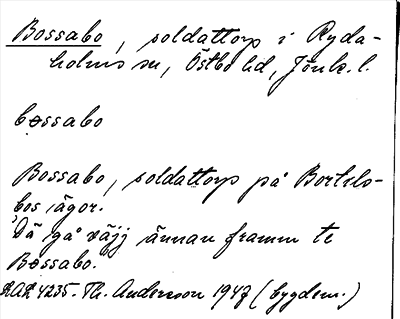 Bossabo, soldattorp i Ryda-
holms sn, Östbo hd, Jönk. l.
bossabo
Bossabo, soldattorp på Bortelo-
bos ägor.
Dä gå väjj ännan framm te
Bossabo.
4235. Th. Andersson 1947 (bygdem.)